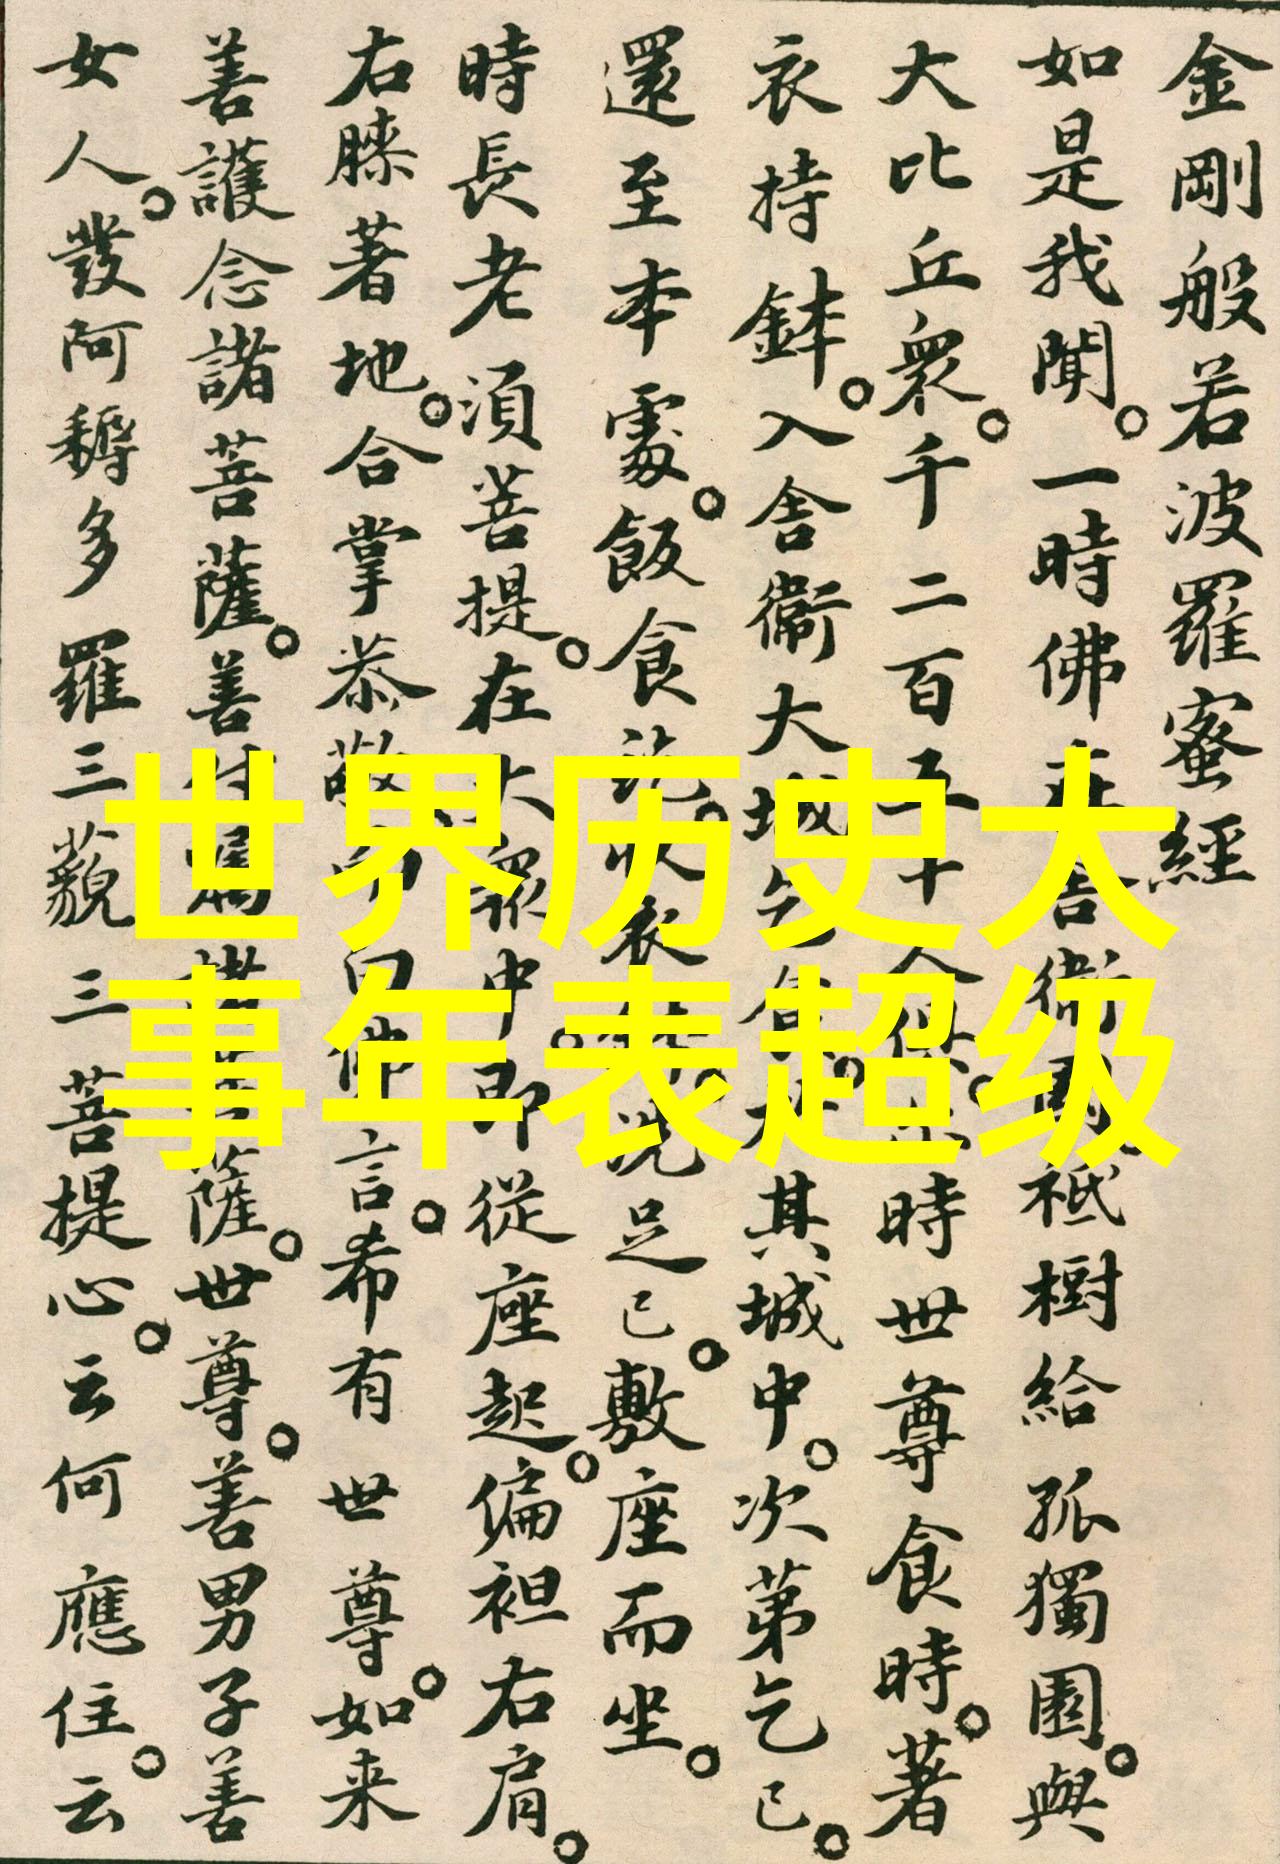 金剛般若波羅蜜經
如是我聞。一時佛在舍衛國。祇樹給孤獨園。與
大比丘衆。千二百五十人俱。時世尊食時。著
衣持鉢。入舍衞大城乞食。於其城中。次第乞已。
還至本處。飯食訖。收衣。洗足已。敷座而坐。
時長老湏菩提。在大衆中。即從座起。偏袒右肩。
右膝著地。合掌恭敬而白佛言。希有世尊。如来
善護念諸菩薩。善付囑諸菩薩。世尊。善男子善
女人。發阿耨多羅三藐三菩提心。云何應住。云
世界历史大
事年表超级